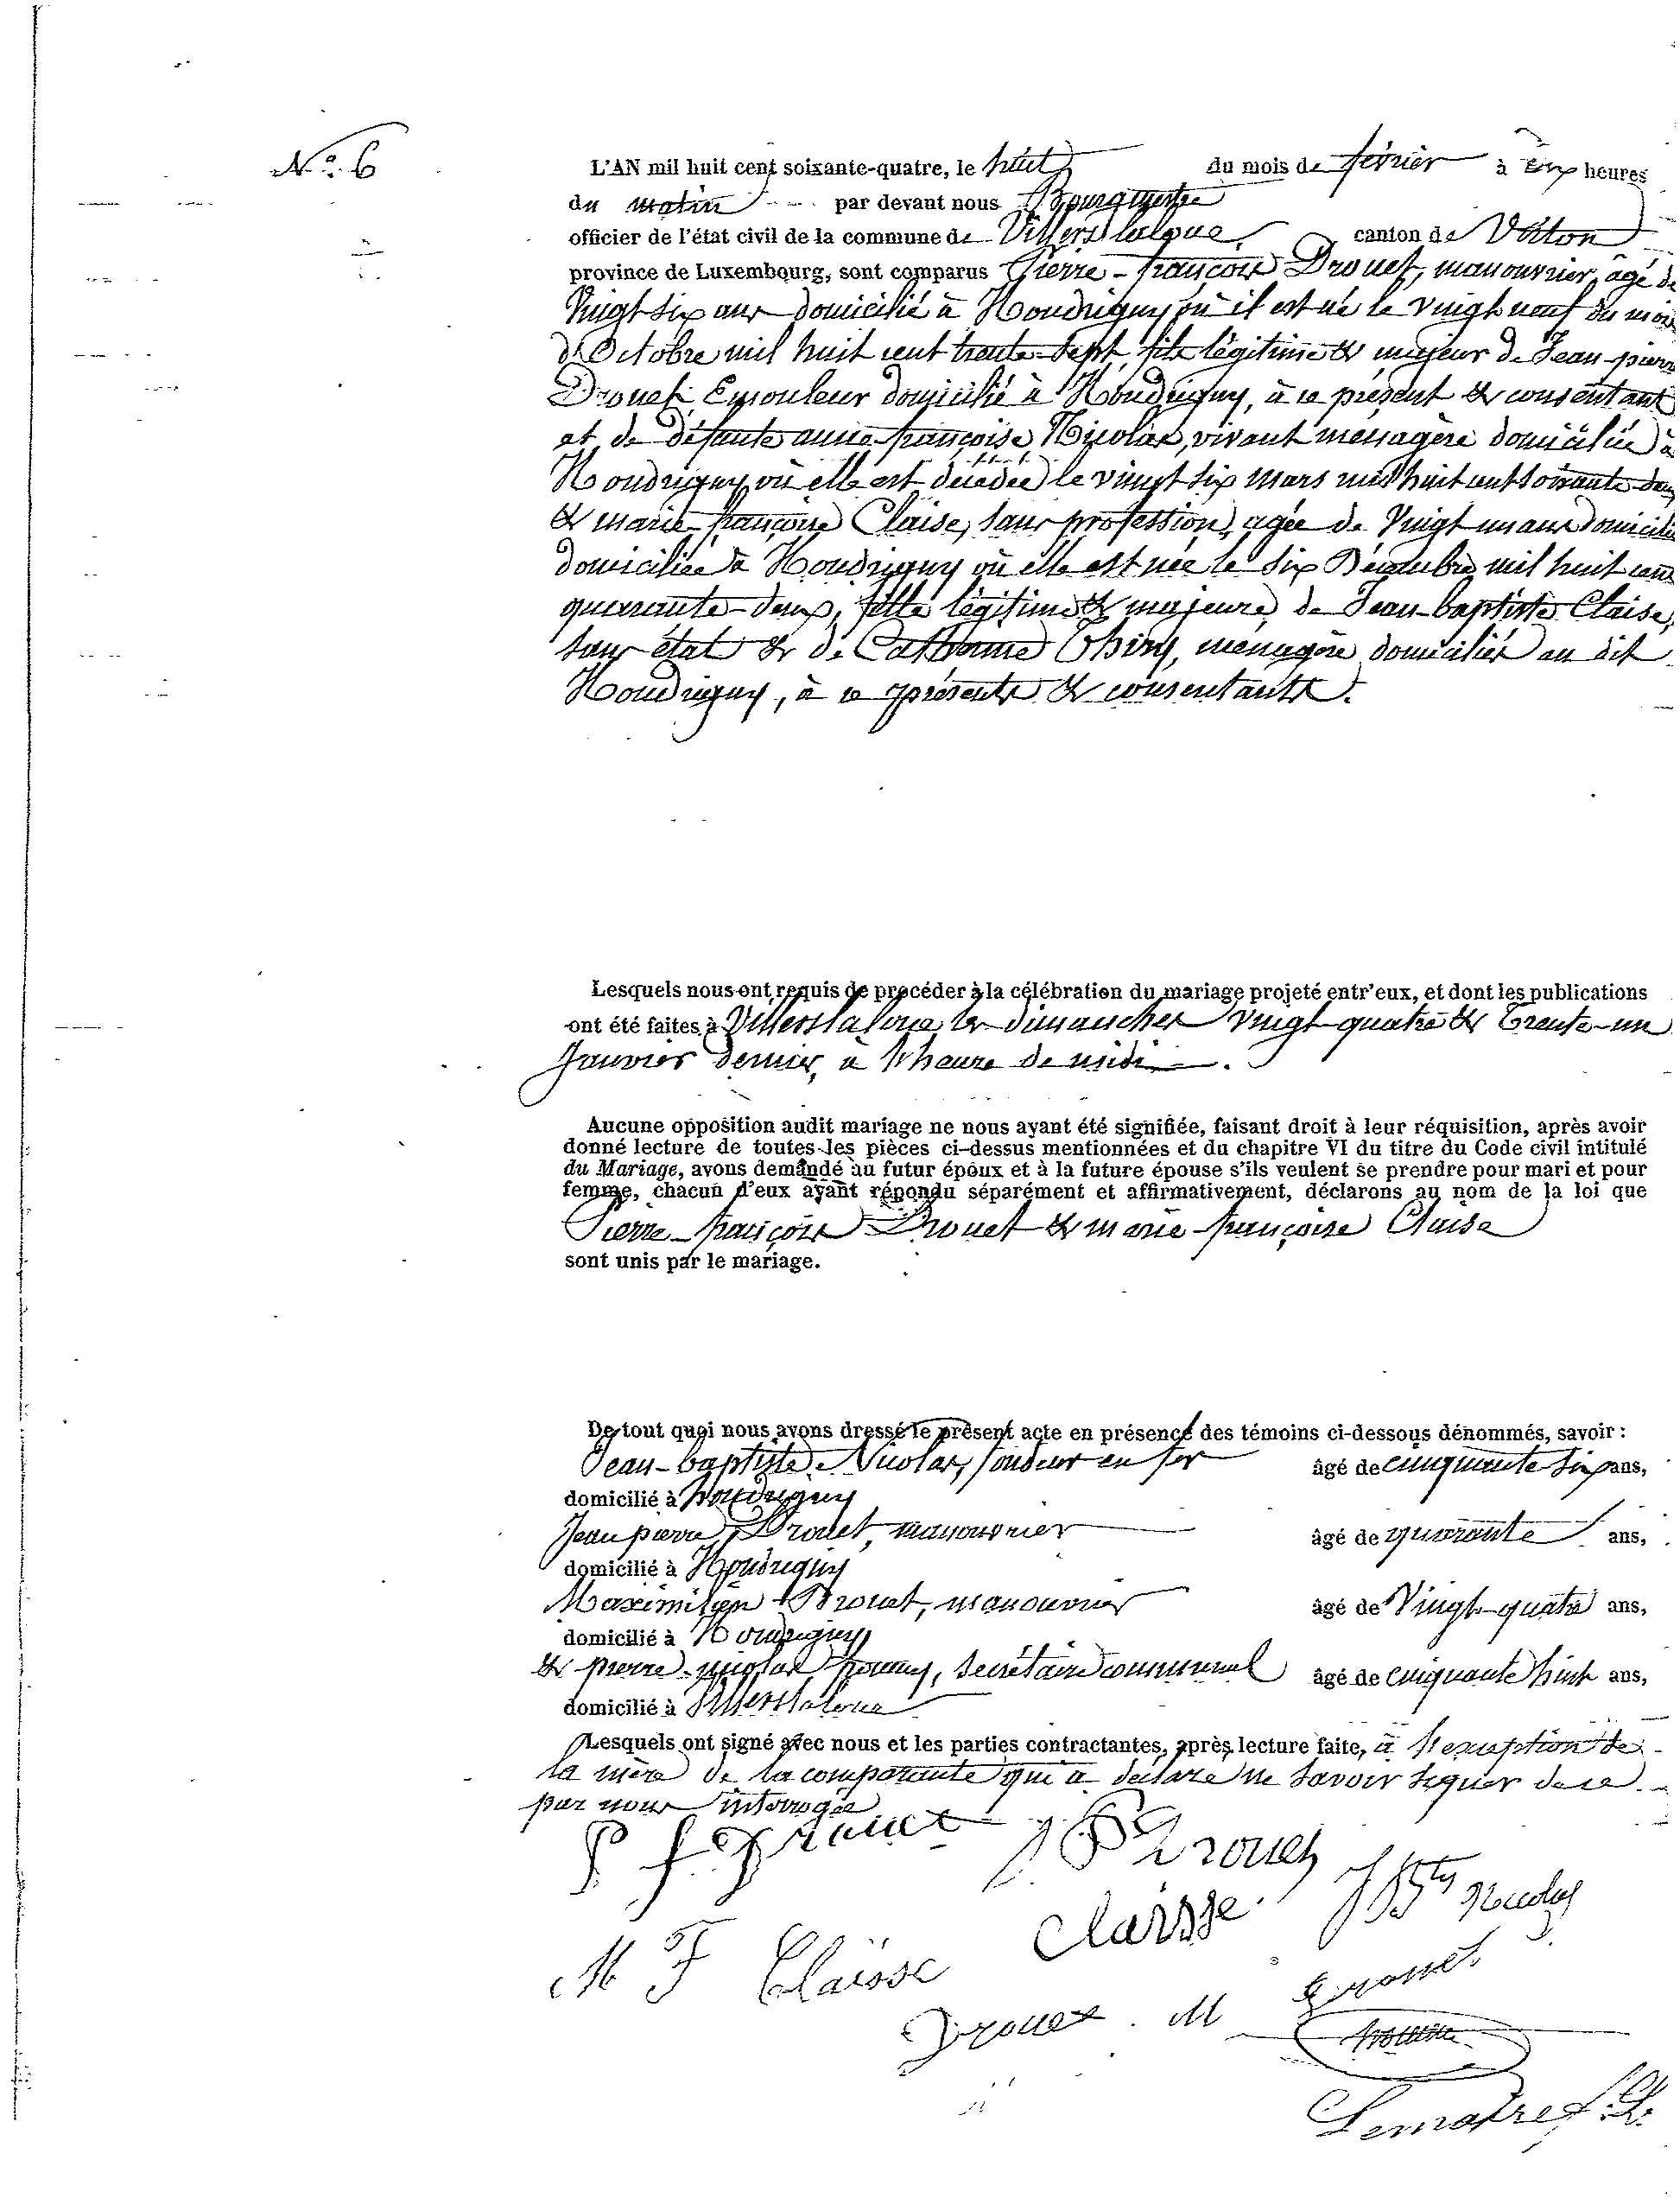 N° 6
L'AN mil huit cent soixante-quatre, le huit du mois de février à heures
du matin par devant nous Bourgmestre
officier de l'état civil de la commune de Villerslaloue, canton de Virton
province de Luxembourg, sont comparus Pierre-françois Drouet, manouvrier, âgé de
Vingt six ans domicilié à Houdrigny où il est né le vingt neuf du mois
d'Octobre mil huit cent trente-sept, fils légitime & majeur de Jean-pierre
Drouet Emouleur domicilié à Houdrigny, à ce présent & consentant
et de défunte anne-françoise Nicolas, vivant ménagère domiciliée à
Houdrigny où elle est décédée le vingt six mars mil huit cent soixante-deux
& marie-françoise Claise, sans profession, agée de Vingt un ans domiciliée
domiciliée à Houdrigny où elle est née le six Décembre mil huit cent
quarante-deux, fille légitime & majeure de Jean-baptiste Claise,
sans état & de Catherine Thiry, ménagère domiciliés au dit
Houdrigny, à ce présents & consentants.
Lesquels nous ont requis de procéder à la célébration du mariage projeté entr'eux, et dont les publications
ont été faites à Villerslaloue les dimanches vingt-quatre & trente-un
Janvier dernier, à l'heure de midi.
Aucune opposition audit mariage ne nous ayant été signifiée, faisant droit à leur réquisition, après avoir
donné lecture de toutes les pièces ci-dessus mentionnées et du chapitre VI du titre du Code civil intitulé
du Mariage, avons demandé au futur époux et à la future épouse s'ils veulent se prendre pour mari et pour
femme, chacun d'eux ayant répondu séparément et affirmativement, déclarons au nom de la loi que
Pierre-françois Drouet & marie-françoise Claise
sont unis par le mariage.
De tout quoi nous avons dressé le présent acte en présence des témoins ci-dessous dénommés, savoir :
Jean-baptiste Nicolas, fondeur en fer âgé de cinquante six ans,
domicilié à houdrigny
Jean pierre Drouet, manouvrier âgé de quarante ans,
domicilié à Houdrigny
Maximilien Drouet, manouvrier âgé de Vingt-quatre ans,
domicilié à Houdrigny
& pierre-nicolas, secrétaire communal âgé de cinquante huit ans,
domicilié à Villerslaloue
Lesquels ont signé avec nous et les parties contractantes, après lecture faite, à l'exception de
la mère de la comparante qui a déclaré ne savoir signer de ce
par nous interrogée
P f Drouet J P Drouet
Claisse J Bte Nicolas
M F Claisse
Drouet. M Drouet
Lemaire f. L.